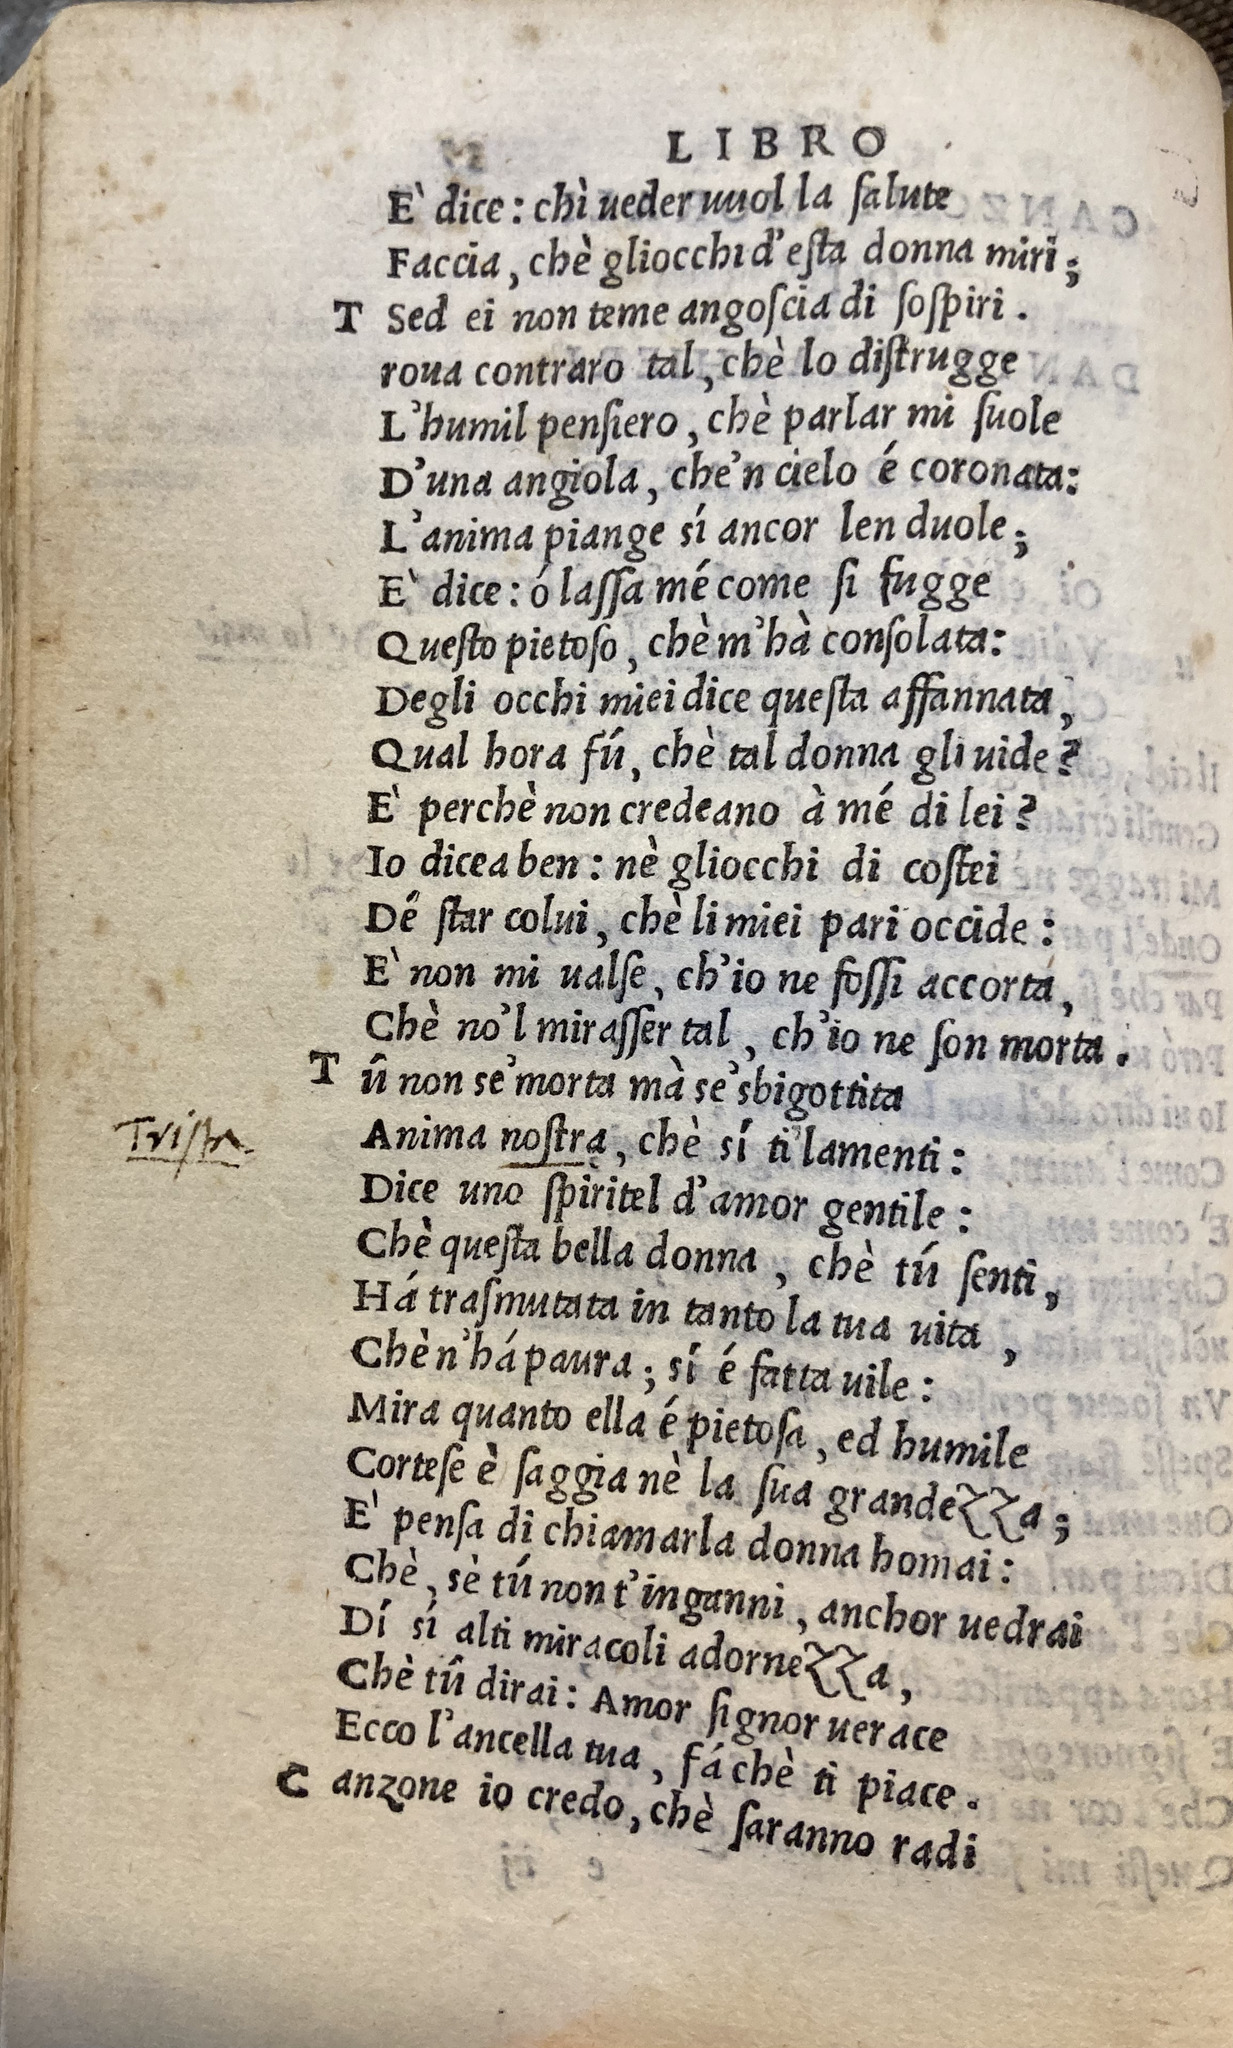 LIBRO
E' dice: chì ueder uuol la ſalute
Faccia, chè gliocchi d'eſta donna miri;
Sed ei non teme angoſcia di ſoſpiri.
T roua contraro tal, chè lo diſtrugge
L'humil penſiero, chè parlar mi ſuole
D'una angiola, che'n cielo é coronata:
L'anima piange sí ancor len duole;
E' dice: ó laſſa mé come ſi fugge
Queſto pietoſo, chè m'hà conſolata:
Degli occhi miei dice queſta affannata,
Qual hora fú, chè tal donna gli uide?
E' perchè non credeano à mé di lei?
Io dicea ben: nè gliocchi di coſtei
Dé ſtar colui, chè li miei pari occide:
E' non mi ualſe, ch'io ne foſſi accorta,
Chè no'l miraſſer tal, ch'io ne ſon morta.
T û non se'morta mà se'sbigottita
Trista. Anima noſtra, chè sí ti lamenti:
Dice uno ſpiritel d'amor gentile:
Chè queſta bella donna, chè tú ſenti,
Há traſmutata in tanto la tua uita,
Chè n'há paura; sí é fatta uile:
Mira quanto ella é pietoſa, ed humile
Corteſe è ſaggia nè la ſua grandezza;
E' penſa di chiamarla donna homai:
Chè, sè tú non t'inganni, anchor uedrai
Dí sí alti miracoli adornezza,
Chè tû dirai: Amor ſignor uerace
Ecco l'ancella tua, fá chè ti piace.
C anzone io credo, chè ſaranno radi